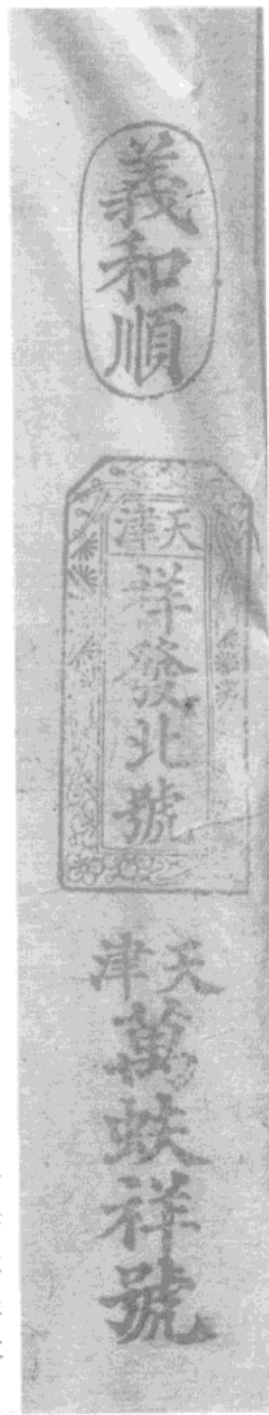 義和順
天津
祥發北號
天津
萬蚨祥號